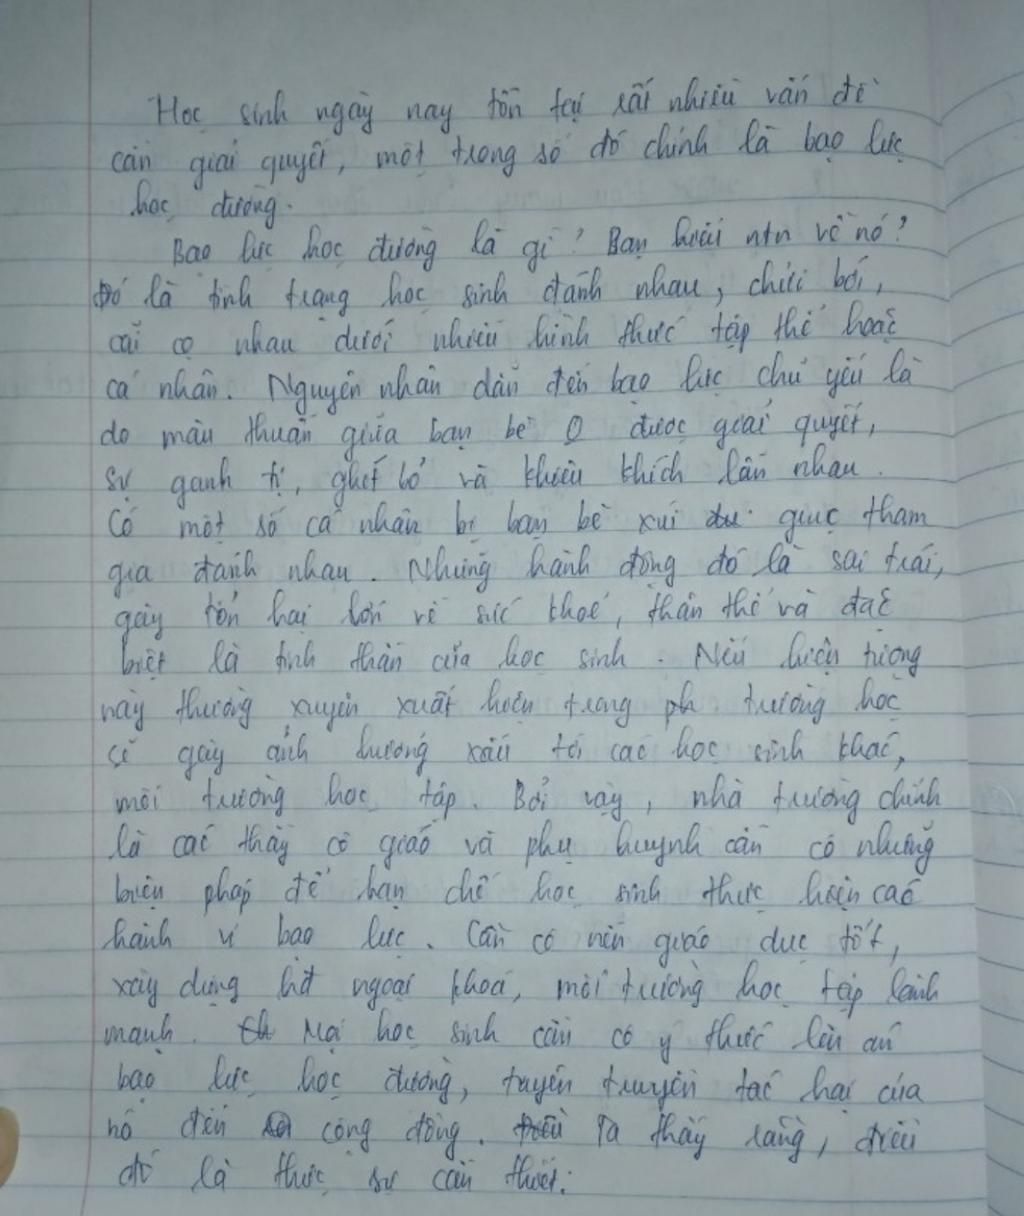 Học sinh ngày nay tồn tại rất nhiều vấn đề
cần giải quyết, một trong số đó chính là bạo lực
học đường.
Bạo lực học đường là gì? Bạn hiểu ntn về nó?
Đó là tình trạng học sinh đánh nhau, chửi bới,
cãi cọ nhau dưới nhiều hình thức tập thể hoặc
cá nhân. Nguyên nhân dẫn đến bạo lực chủ yếu là
do mâu thuẫn giữa bạn bè 0 được giải quyết,
sự ganh tị, ghét bỏ và khiêu khích lẫn nhau.
Có một số cá nhân bị bạn bè xúi giục tham
gia đánh nhau. Những hành động đó là sai trái,
gây tổn hại lớn về sức khoẻ, thân thể và đặc
biệt là tinh thần của học sinh. Nếu hiện tượng
này thường xuyên xuất hiện trong trường học
sẽ gây ảnh hưởng xấu tới các học sinh khác,
môi trường học tập. Bởi vậy, nhà trường chính
là các thầy cô giáo và phụ huynh cần có những
biện pháp để hạn chế học sinh thực hiện các
hành vi bạo lực. Cần có nền giáo dục tốt,
xây dựng hđ ngoại khoá, môi trường học tập lành
mạnh. Mọi học sinh cần có ý thức lên án
bạo lực học đường, tuyên truyền tác hại của
nó đến cộng đồng. Ta thấy rằng, điều
đó là thực sự cần thiết.